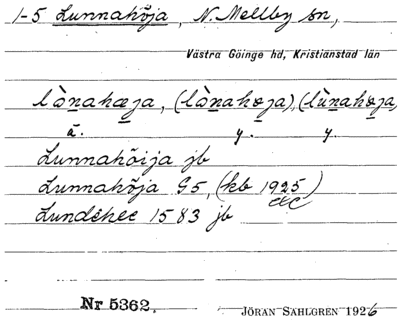 1-5 Lunnahöja, N. Mellby sn,
Västra Göinge hd, Kristianstad län
lònahæja, (lònahøja), (lùnahøja)
ä. y. y.
Lunnahöija jb
Lunnahöja G5, (kb 1925)
etc
1583 jb
Nr 5362.
JÖRAN SAHLGREN 1926